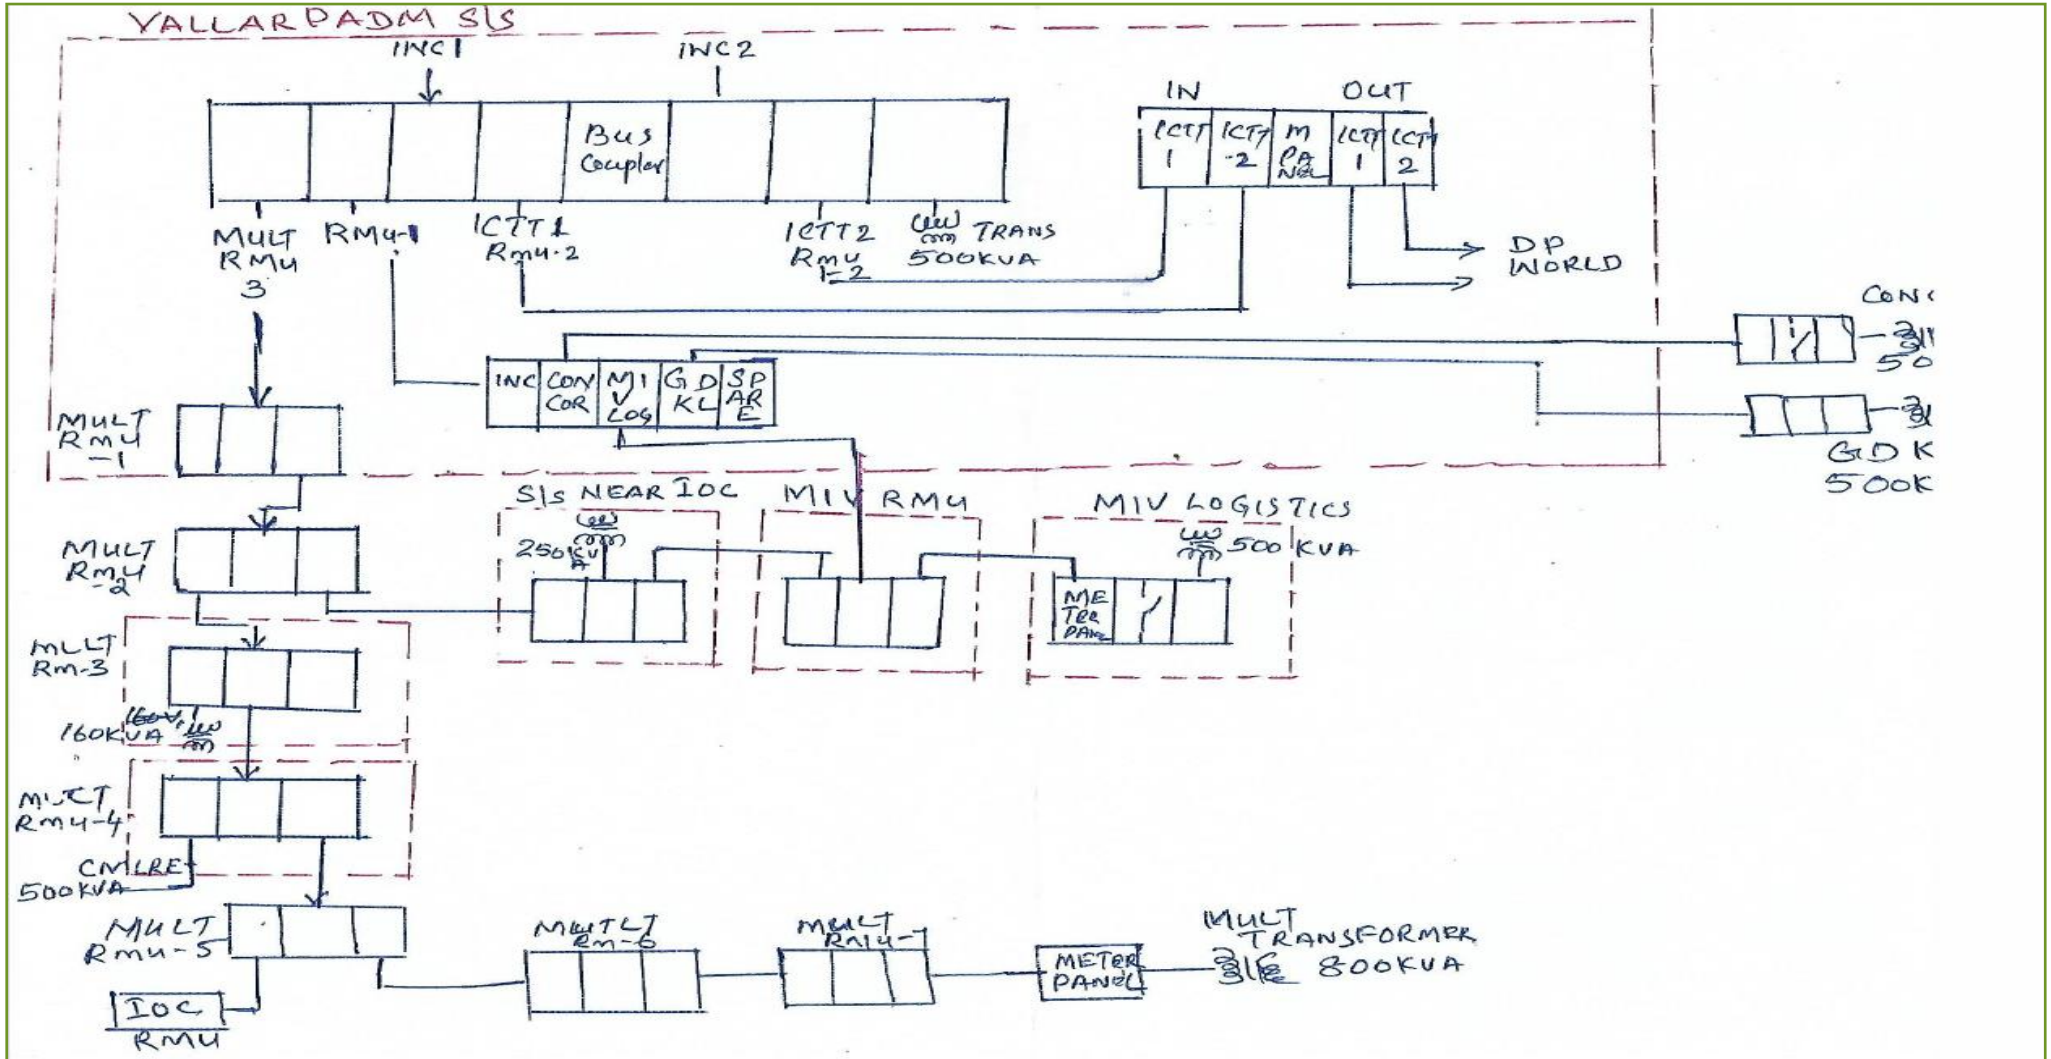 VALLARPADM S/S
INC1
INC2
IN
OUT
Bus
Coupler
ICTT
1
ICTT
-2
M
PA
NEL
ICTT
1
ICTT
2
MULT
RMU
3
RMU-1
ICTT1
RMU-2
ICTT2
RMU
1-2
TRANS
500KVA
DP
WORLD
CONC
50
INC
CON
COR
MI
V
LOG
GD
KL
SP
AR
E
MULT
RMU
-1
GDK
500K
S/S NEAR IOC
MIV RMU
MIV LOGISTICS
250KV
A
500 KVA
MULT
RMU
-2
ME
TER
PANEL
MULT
RM-3
160KVA
MULT
RMU-4
CMLRE
500KVA
MULT
RMU-5
MUTLT
RM-6
MULT
RMU-7
METER
PANEL
MULT
TRANSFORMER
800KVA
IOC
RMU